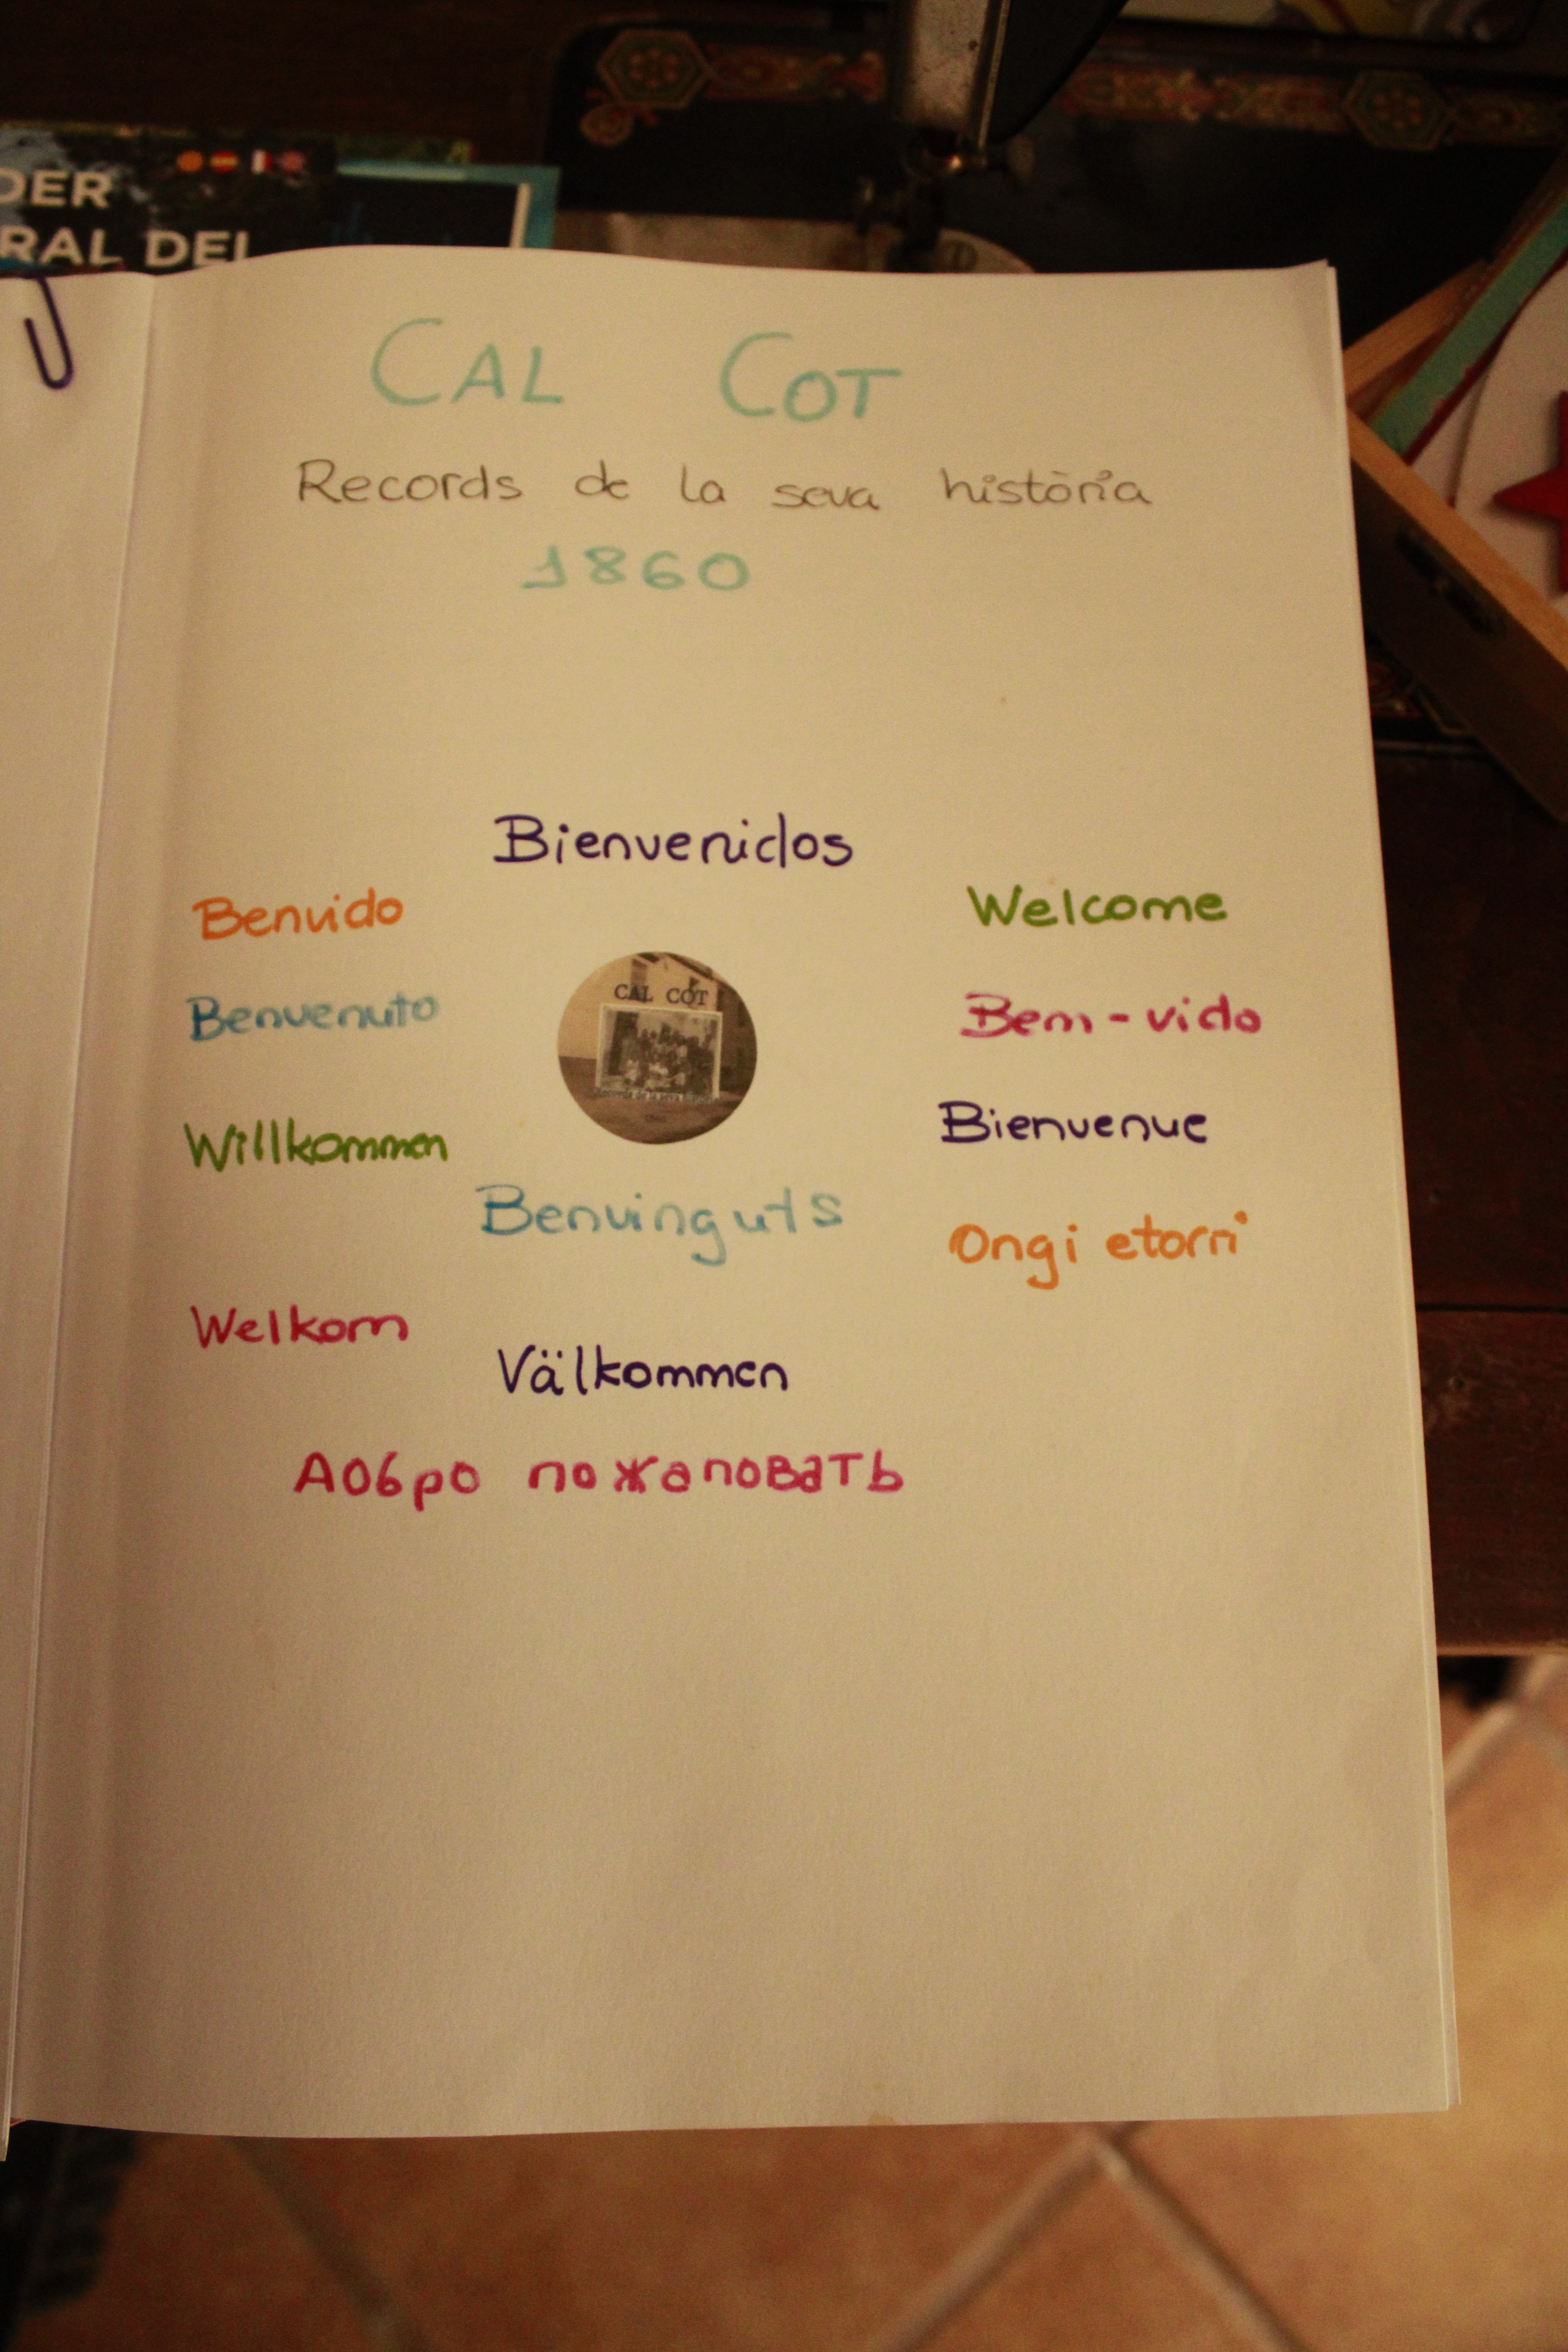 DER
RAL DEL
CAL COT
Records de la seva història
1860
Bienvenidos
Benvido
Welcome
Benvenuto
CAL COT
Bem-vido
Willkommen
Bienvenue
Benvinguts
Ongi etorri
Welkom
Välkommen
Добро пожаловать